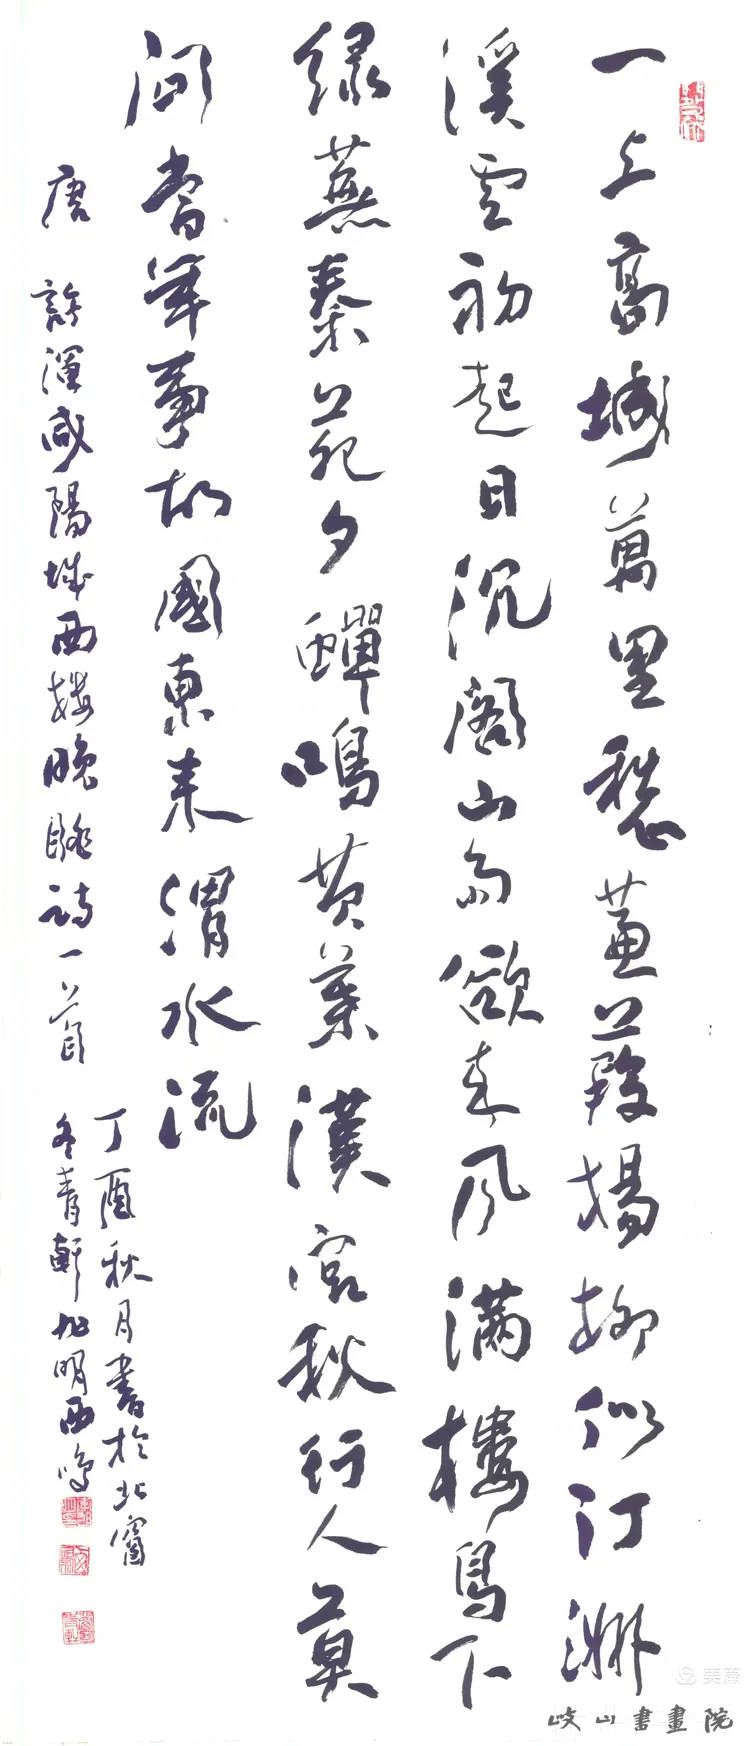 一上高城萬里愁蒹葭楊柳似汀洲
溪雲初起日沉閣山雨欲來風滿樓鳥下
緑蕪秦苑夕蟬鳴黄葉漢宮秋行人莫
問當年事故國東来渭水流
唐許渾咸陽城西樓晚眺詩一首
丁酉秋月書於北窗
冬青軒旭明西鳴
美篇
岐山書畫院